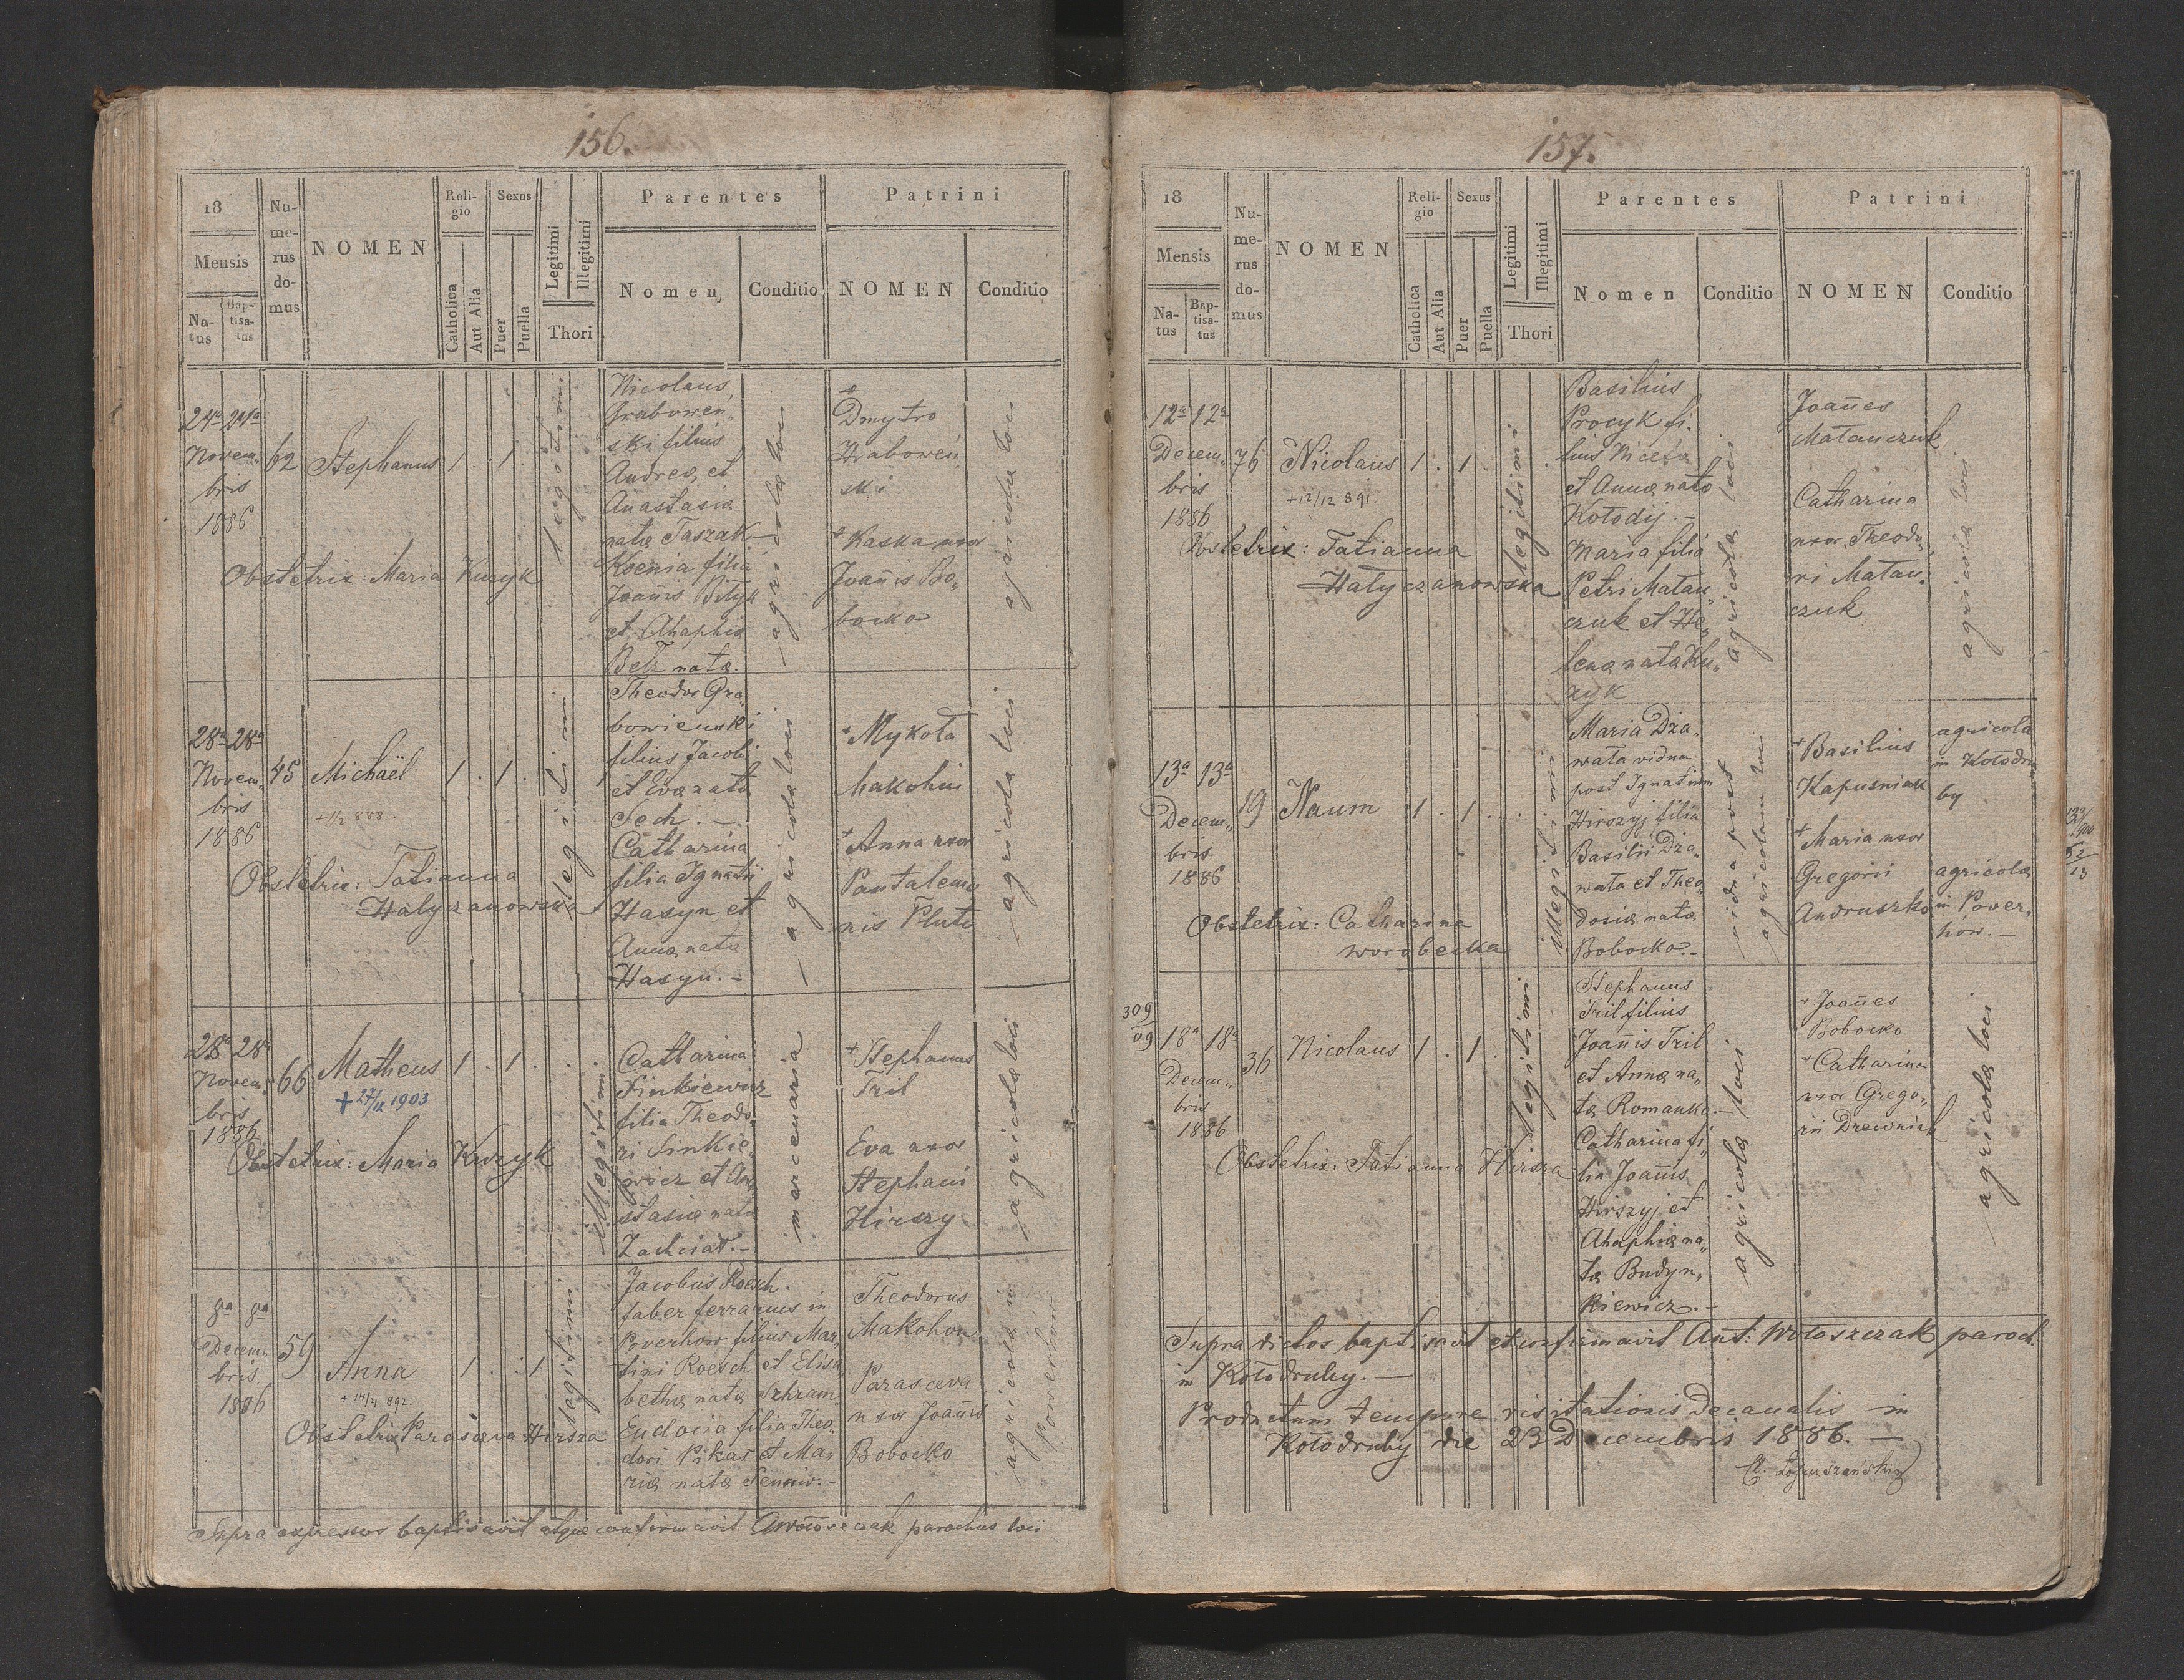 156.
18
Mensis
Na-
tus
Bap-
tisa-
tus
Nu-
me-
rus
do-
mus
NOMEN
Reli-
gio
Catholica
Aut Alia
Sexus
Puer
Puella
Legitimi
Illegitimi
Thori
Parentes
Nomen
Conditio
Patrini
NOMEN
Conditio
24a 24a
Novem„
bris
1886
62
Stephanus
1 . 1 .
legitimi
Nicolaus
Grabowen„
ski filius
Andreæ, et
Anastasia
natæ Taszak
Ksenia filia
Joañis Bityk
et Ahaphiæ
Betz natæ.
agricolæ loci
+
Dmytro
Hraboweń
ski
+ Kaska uxor
Joañis Bo„
bocko
agricolæ loci
Obstetrix: Maria Kuzyk
28a 28a
Novem„
bris
1886
45
Michaël
+ 1/2 888.
1 . 1 .
legitimi
Theodor Gra„
bowienski
filius Jacobi
et Eva nata
Sech. –
Catharina
filia Ignatii
Hasyn et
Annæ nata
Hasyn. –
agricolæ loci
+ Mykoła
Makohin
+ Anna uxor
Pantalemo
nis Pluto
agricolæ loci
Obstetrix: Tatianna
Halyczanowska
28a 28a
Novem„
bris
1886
66
Matheus
+ 27/12 1903
1 . 1 . .
illegitimi
Catharina
Sinkiewicz
filia Theodo„
ri Sinkie„
wicz et Ana
stasiæ natæ
Zachciał. –
mercenaria
+ Stephanus
Tril
Eva uxor
Stephani
Hirszy
agricolæ loci
Obstetrix: Maria Kuzyk
8a 8a
Decem„
bris
1886
59
Anna
+ 14/4 892.
1 . . 1
legitimi
Jacobus Roesch.
faber ferrarius in
Powerhow filius Mar„
tini Roesch et Elisa„
bethæ natæ Schram
Eudocia filia Theo„
dori Pikas et Ma„
riæ natæ Semiw. –
Theodorus
Makohon
Parasceva
uxor Joañis
Bobocko
agricolæ in
Powerhow
Obstetrix Parasceva Hirsza
Supra expressos baptisavit atque confirmavit A Wołoszczak parochus loci
157.
18
Mensis
Na-
tus
Bap-
tisa-
tus
Nu-
me-
rus
do-
mus
NOMEN
Reli-
gio
Catholica
Aut Alia
Sexus
Puer
Puella
Legitimi
Illegitimi
Thori
Parentes
Nomen
Conditio
Patrini
NOMEN
Conditio
12a 12a
Decem„
bris
1886
76
Nicolaus
+ 12/12 891.
1 . 1 .
legitimi
Basilius
Procyk fi„
lius Niceta
et Annæ natæ
Kołodij. –
Maria filia
Petri Matau„
czuk et He„
lenæ natæ Ku„
zyk
agricolæ loci
Joañes
Matauczuk
Catharina
uxor Theodo„
ri Matau„
czuk
agricolæ loci
Obstetrix: Tatianna
Halyczanowska
13a 13a
Decem„
bris
1886
19
Naum
1 . 1 . .
illegitimi
Maria Dza„
wata vidua
post Ignatium
Hirszyj filia
Basilii Dza„
wata et Theo„
dosiæ natæ
Bobocko. –
vidua post
agricolam loci
+ Basilius
Kapusniak
+ Maria uxor
Gregorii
Andruszko
agricola
in Kołodru
by
agricolæ
in Power„
how. –
Obstetrix: Catharina
Worobecka
309
09
18a 18a
Decem„
bris
1886
36
Nicolaus
1 . 1 .
legitimi
Stephanus
Tril filius
Joañis Tril
et Annæ na„
tæ Romanko. –
Catharina fi„
lia Joañis
Hirszyj et
Ahaphiæ na„
tæ Budyn„
kiewicz. –
agricolæ loci
+ Joañes
Bobocko
+ Catharina
uxor Grego„
rii Drewniak
agricolæ loci
Obstetrix: Tatianna Hirsza
Supra dictos baptisavit et confirmavit Ant: Wołoszczak paroch.
in Kołodruby. –
Productum tempore visitationis Decanalis in
Kołodruby die 23 Decembris 1886. –